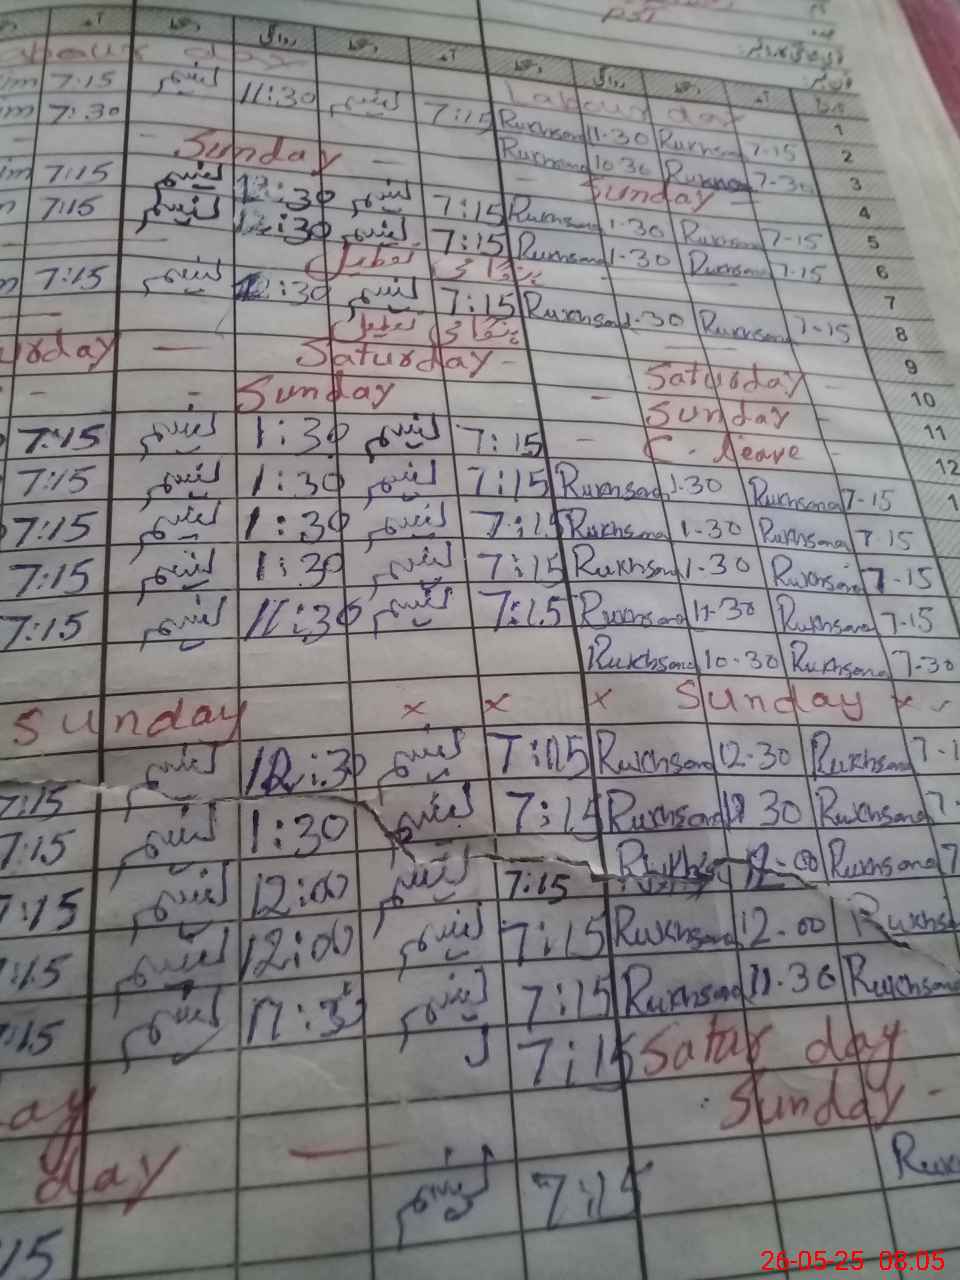 آمد روانگی دستخط آمد دستخط روانگی دستخط آمد
day Labour day
7:15 نسیم 11:30 نسیم 7:15 Rukhsana 11-30 Rukhsana 7-15 1
7:30 Rukhsana 10-30 Rukhsana 7-30 2
Sunday - Sunday 3
7:15 نسیم 12:30 نسیم 7:15 Rukhsana 1-30 Rukhsana 7-15 4
7:15 نسیم 12:30 نسیم 7:15 Rukhsana 1-30 Rukhsana 7-15 5
ہنگامی تعطیل 6
7:15 نسیم 12:30 نسیم 7:15 Rukhsana 1-30 Rukhsana 7-15 7
ہنگامی تعطیل 8
urday - Saturday - Saturday - 9
- - Sunday - Sunday - 10
7:15 نسیم 1:30 نسیم 7:15 - C. leave - 11
7:15 نسیم 1:30 نسیم 7:15 Rukhsana 1-30 Rukhsana 7-15 12
7:15 نسیم 1:30 نسیم 7:15 Rukhsana 1-30 Rukhsana 7-15 1
7:15 نسیم 1:30 نسیم 7:15 Rukhsana 1-30 Rukhsana 7-15
7:15 نسیم 11:30 نسیم 7:15 Rukhsana 11-30 Rukhsana 7-15
Rukhsana 10-30 Rukhsana 7-30
Sunday x x x Sunday x -
7:15 نسیم 12:30 نسیم 7:15 Rukhsana 12-30 Rukhsana 7-1
7:15 نسیم 1:30 نسیم 7:15 Rukhsana 30 Rukhsana 7-
7:15 نسیم 12:00 نسیم 7:15 12-00 Rukhsana 7
7:15 نسیم 12:00 نسیم 7:15 Rukhsana 12-00 Rukhsa
7:15 نسیم نسیم 7:15 Rukhsana 11-30 Rukhsana
7:15 Satur day
ay Sunday -
day -
:15 نسیم 7:15 Ruk
26-05-25 08:05